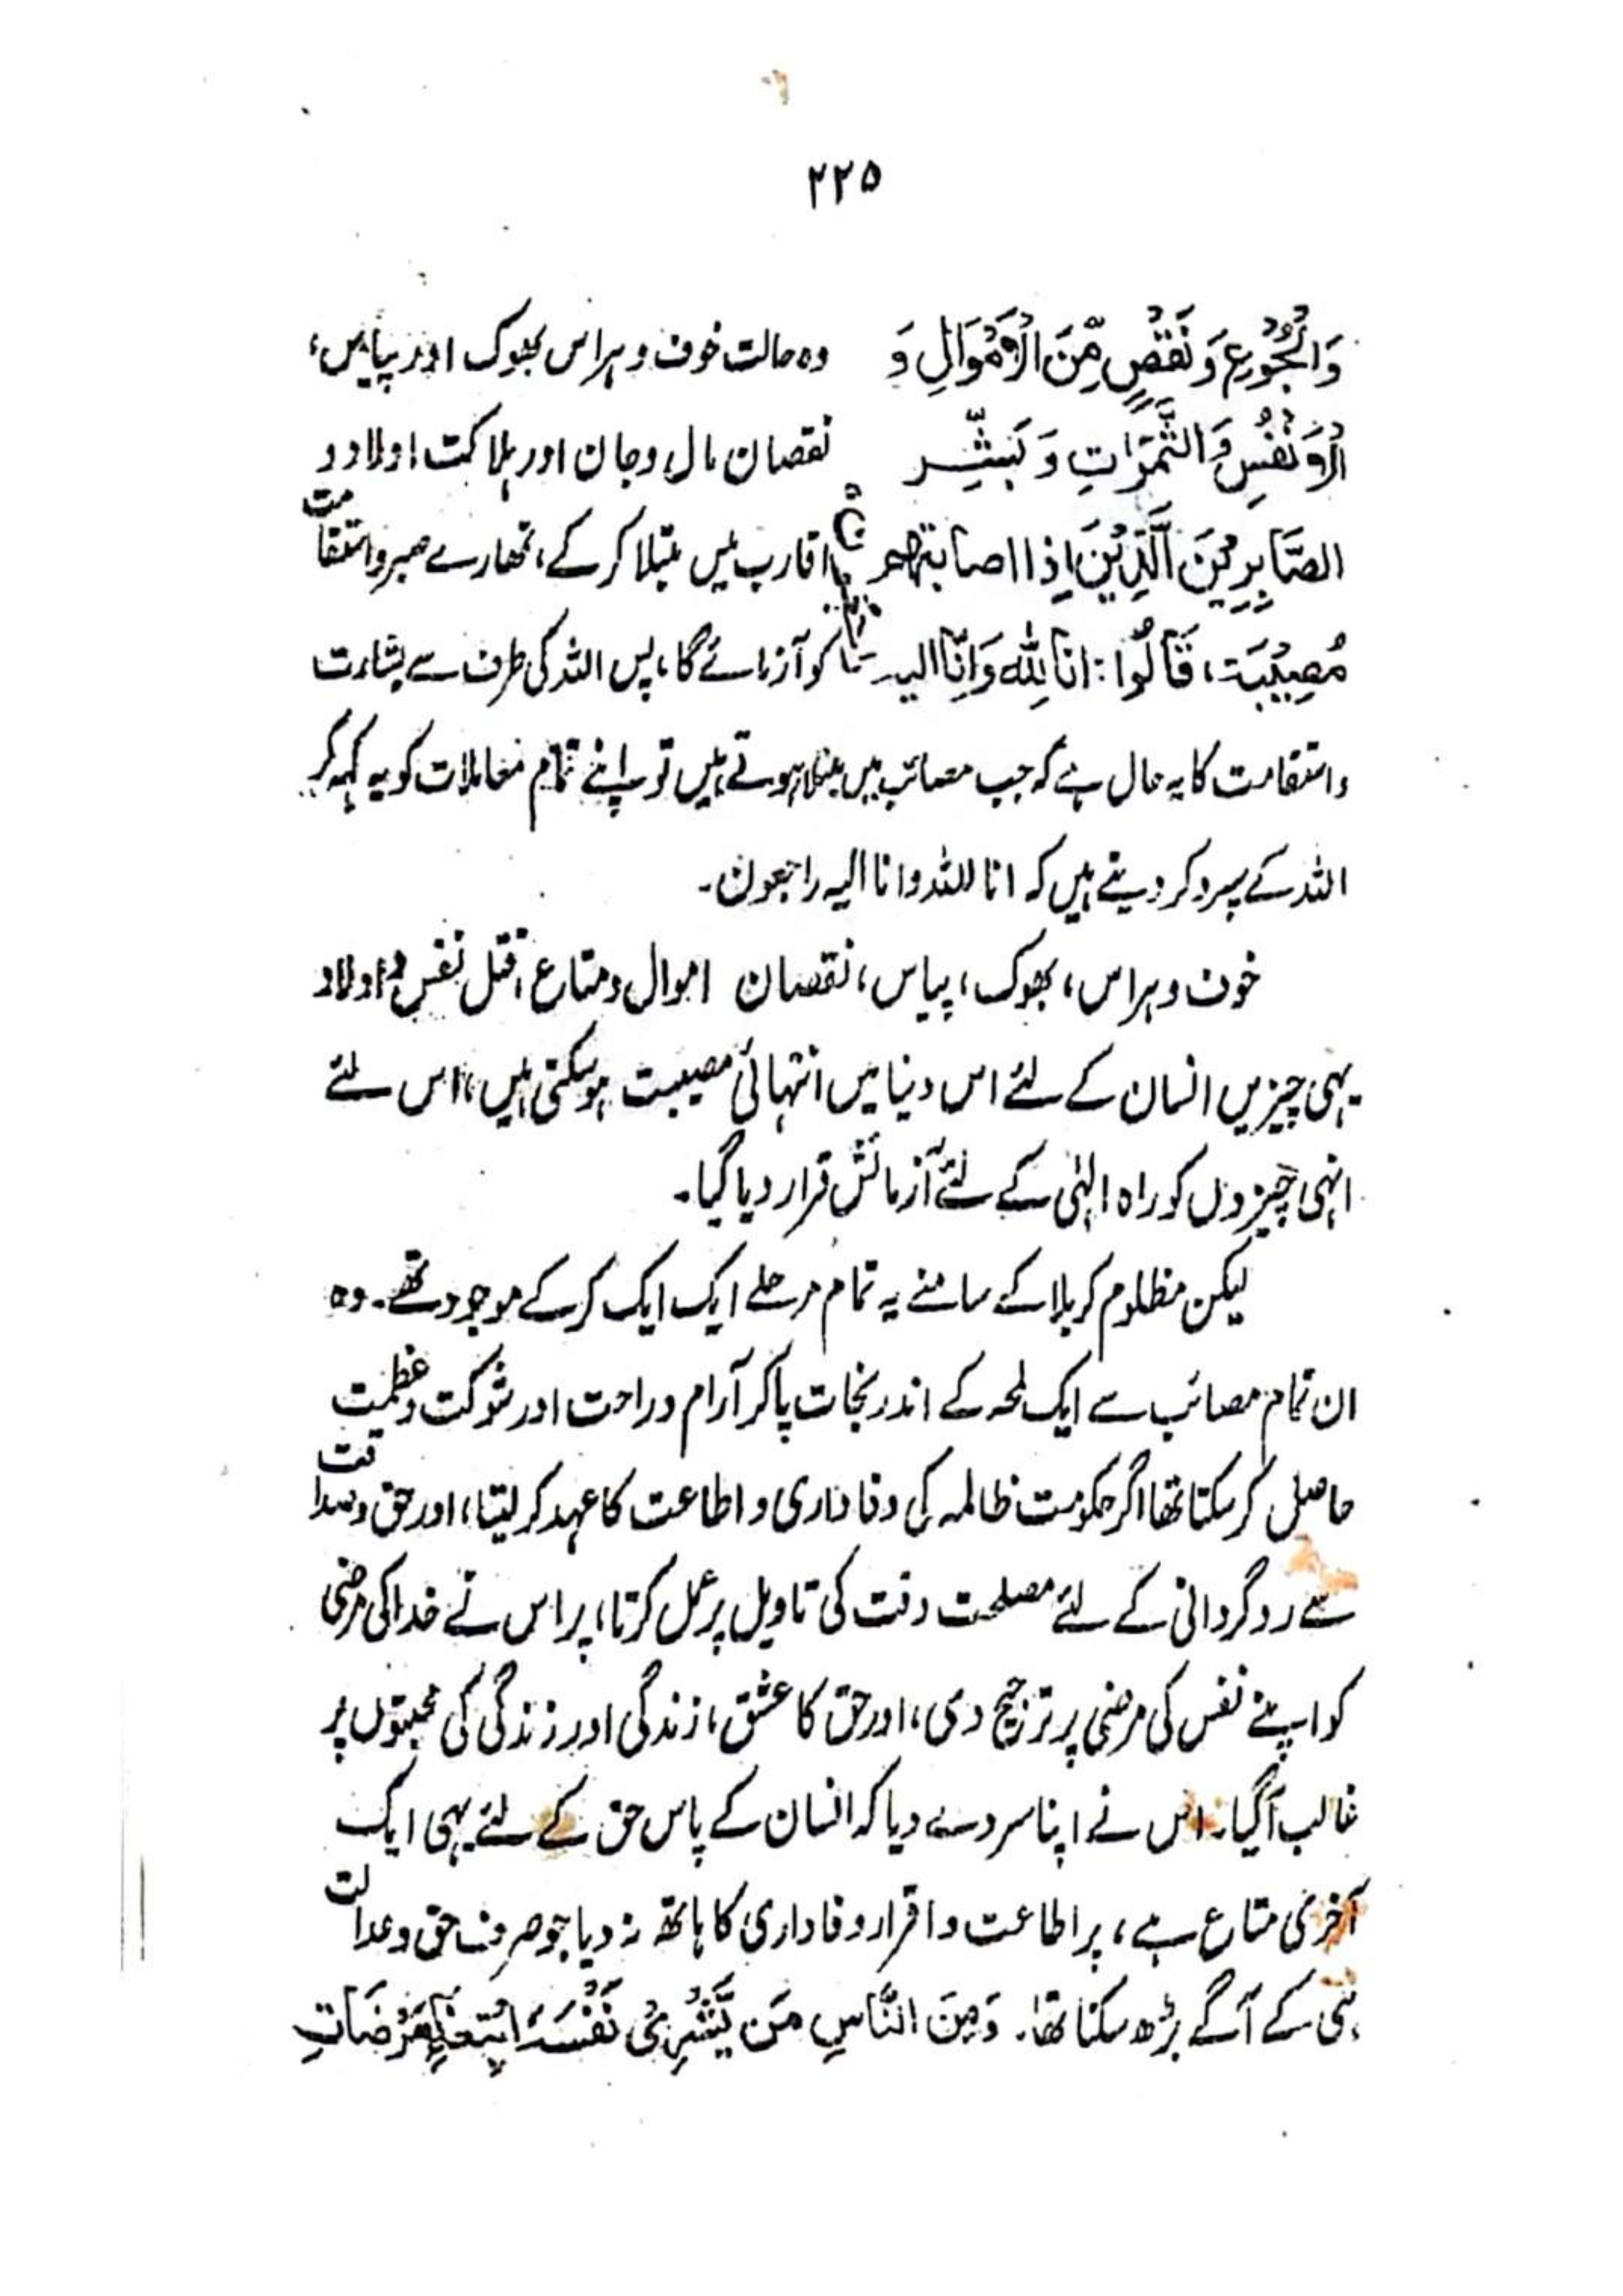 ۲۲۵
وَالْجُوْعِ وَ نَقْصٍ مِّنَ الْاَمْوَالِ وَ وہ حالت خوف و ہراس بھوک اور پیاس،
الْاَنْفُسِ وَالثَّمَرَاتِ وَ بَشِّرِ نقصان مال وجان اور ہلاکت اولاد و
الصَّابِرِيْنَ الَّذِيْنَ اِذَا اصابتهم اقارب میں مبتلا کرکے، تمھارے صبر و استقامت
مُصِيْبَة، قَالُوا: انا لِلّٰه وَاِنَّا اليه کو آزمائے گا، پس اللہ کی طرف سے بشارت
واستقامت کا یہ حال ہے کہ جب مصائب میں مبتلا ہوتے ہیں تو اپنے تمام معاملات کو یہ کہہ کر
اللہ کے سپرد کر دیتے ہیں کہ انا للہ وانا الیہ راجعون۔
خوف و ہراس، بھوک، پیاس، نقصان اموال و متاع، قتل نفس و اولاد
یہی چیزیں انسان کے لئے اس دنیا میں انتہائی مصیبت ہو سکتی ہیں، اس لئے
انہی چیزوں کو راہ الہٰی کے لئے آزمائش قرار دیا گیا۔
لیکن مظلوم کربلا کے سامنے یہ تمام مرحلے ایک ایک کرکے موجود تھے۔ وہ
ان تمام مصائب سے ایک لمحہ کے اندر نجات پاکر آرام و راحت اور شوکت و عظمت
حاصل کر سکتا تھا اگر حکومت ظالمہ کی وفاداری و اطاعت کا عہد کر لیتا، اور حق و صداقت
سے روگردانی کے لئے مصلحت وقت کی تاویل پر عمل کرتا، پر اس نے خدا کی مرضی
کو اپنے نفس کی مرضی پر ترجیح دی، اور حق کا عشق، زندگی اور زندگی کی محبتوں پر
غالب آگیا۔ اس نے اپنا سر دے دیا کہ انسان کے پاس حق کے لئے یہی ایک
آخری متاع ہے، پر اطاعت و اقرار وفاداری کا ہاتھ نہ دیا جو صرف حق و عدالت
ہی کے آگے بڑھ سکتا تھا۔ وَمِنَ النَّاسِ مَن يَّشْرِيْ نَفْسَهُ ابْتِغَاءَ مَرْضَاتِ